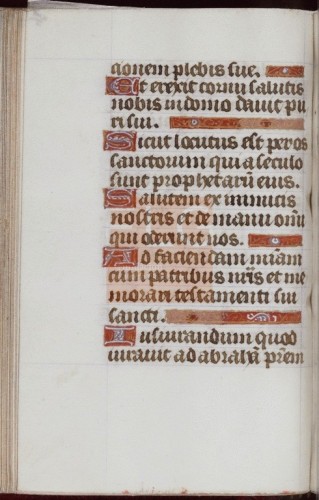 cionem plebis sue.
Et erexit cornu salutis
nobis in domo dauit pu
ri sui.
Sicut locutus est per os
sanctorum qui a seculo
sunt prophetarū eius.
Salutem ex inimicis
nostris et de manu omū
qui oderunt nos.
Ad faciendam mīam
cum patribus nr̄is et me
morari testamenti sui
sancti.
Iusiurandum quod
iurauit ad abrahā prēm